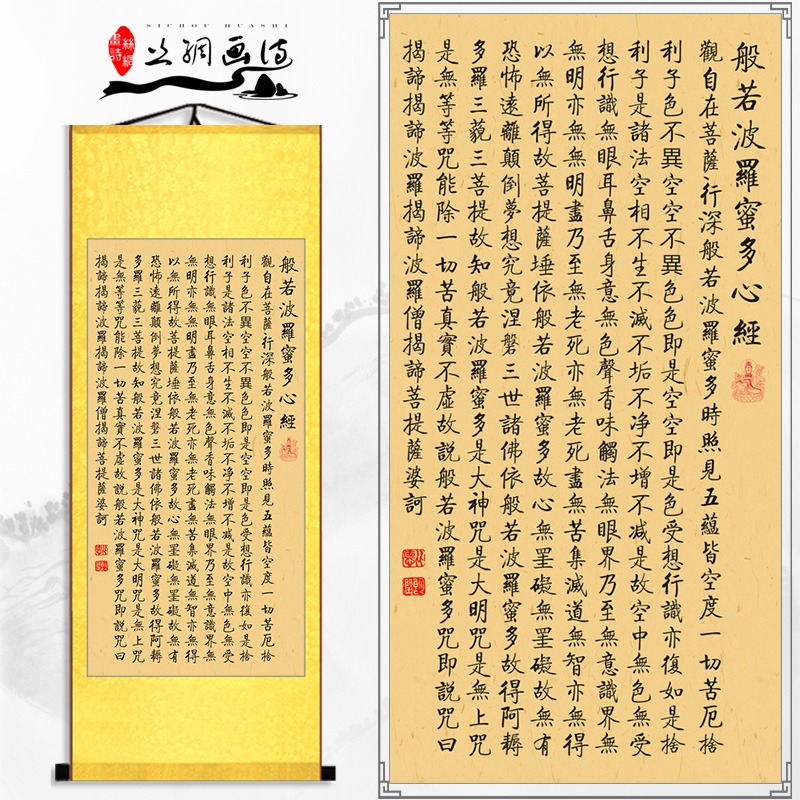 SICHOU HUASHI
絲綢畫詩
丝绸画诗
般若波羅蜜多心經
觀自在菩薩行深般若波羅蜜多時照見五蘊皆空度一切苦厄捨
利子色不異空空不異色色即是空空即是色受想行識亦復如是捨
利子是諸法空相不生不滅不垢不净不增不减是故空中無色無受
想行識無眼耳鼻舌身意無色聲香味觸法無眼界乃至無意識界無
無明亦無無明盡乃至無老死亦無老死盡無苦集滅道無智亦無得
以無所得故菩提薩埵依般若波羅蜜多故心無罣礙無罣礙故無有
恐怖遠離顛倒夢想究竟涅磐三世諸佛依般若波羅蜜多故得阿耨
多羅三藐三菩提故知般若波羅蜜多是大神咒是大明咒是無上咒
是無等等咒能除一切苦真實不虛故説般若波羅蜜多咒即説咒曰
揭諦揭諦波羅揭諦波羅僧揭諦菩提薩婆訶
般若波羅蜜多心經
觀自在菩薩行深般若波羅蜜多時照見五蘊皆空度一切苦厄捨
利子色不異空空不異色色即是空空即是色受想行識亦復如是捨
利子是諸法空相不生不滅不垢不净不增不减是故空中無色無受
想行識無眼耳鼻舌身意無色聲香味觸法無眼界乃至無意識界無
無明亦無無明盡乃至無老死亦無老死盡無苦集滅道無智亦無得
以無所得故菩提薩埵依般若波羅蜜多故心無罣礙無罣礙故無有
恐怖遠離顛倒夢想究竟涅磐三世諸佛依般若波羅蜜多故得阿耨
多羅三藐三菩提故知般若波羅蜜多是大神咒是大明咒是無上咒
是無等等咒能除一切苦真實不虛故説般若波羅蜜多咒即説咒曰
揭諦揭諦波羅揭諦波羅僧揭諦菩提薩婆訶